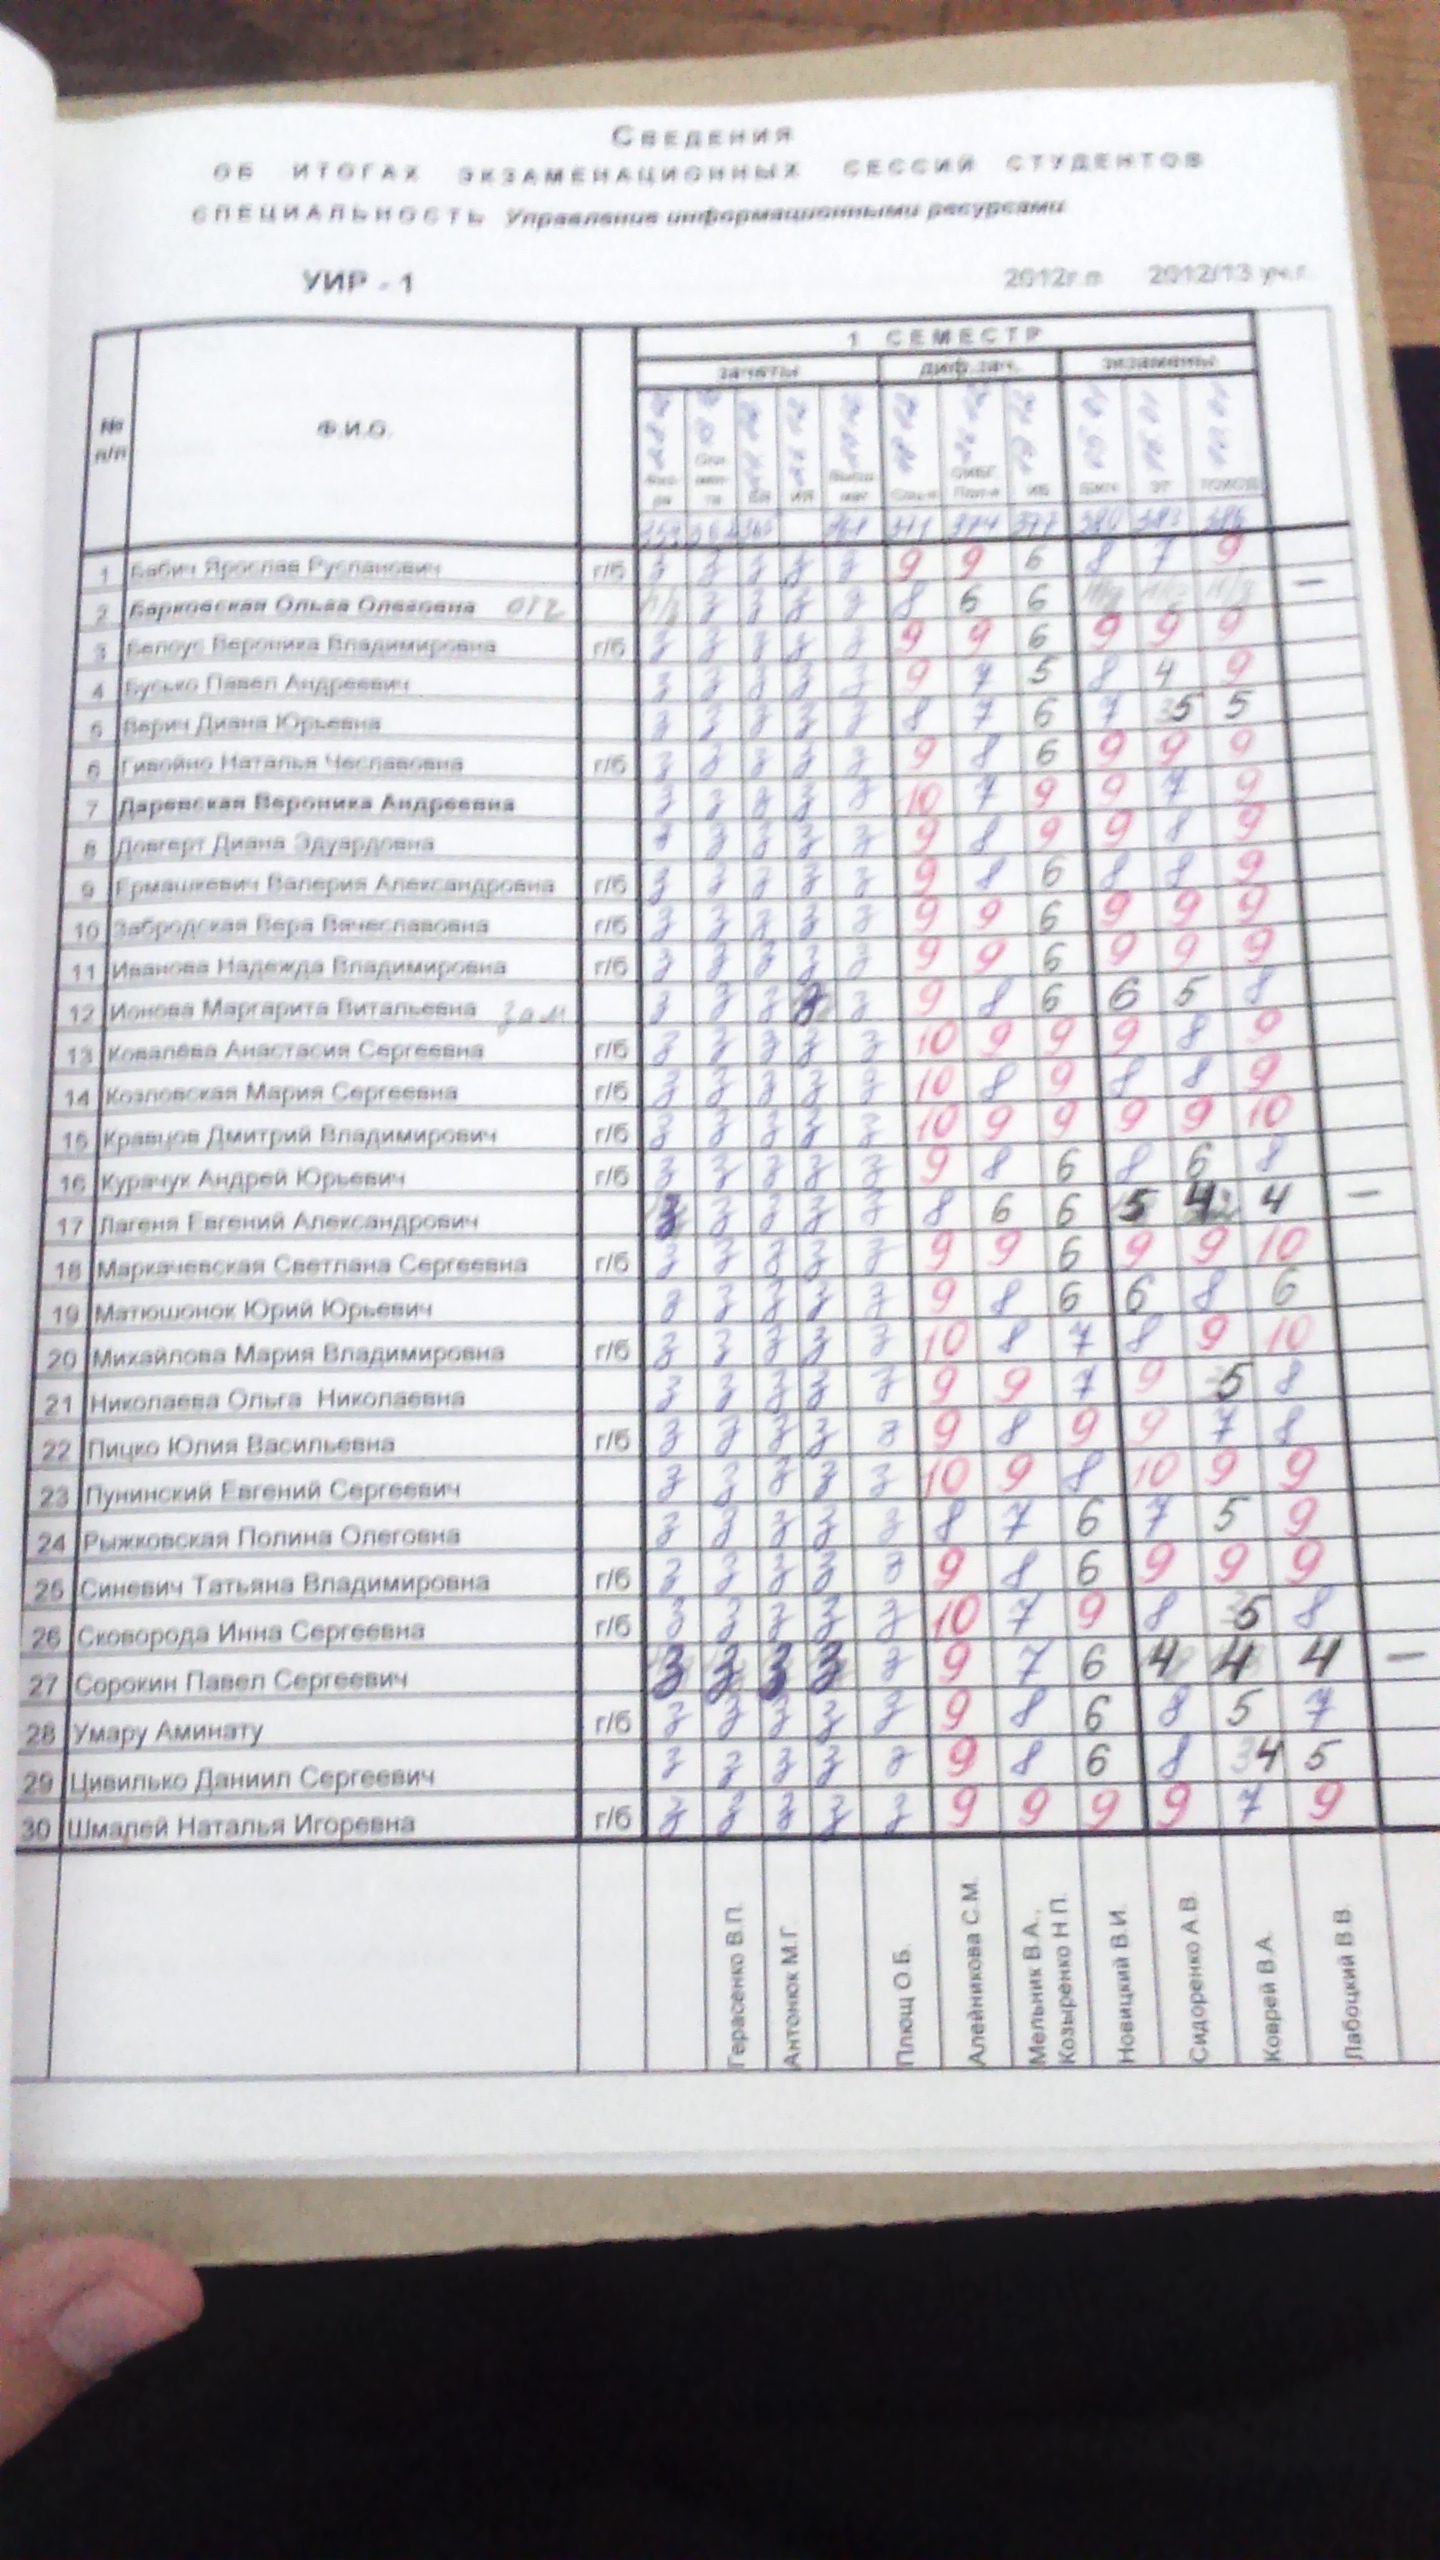 Сведения
об итогах экзаменационных сессий студентов
специальность Управление информационными ресурсами
УИР - 1 2012г.п 2012/13 уч.г.
1 СЕМЕСТР
зачеты диф.зач. экзамены
№ п/п Ф.И.О.
ИЯ ИБ ЭТ
1 Бабич Ярослав Русланович г/б з з з з з 9 9 6 8 7 9
2 Барковская Ольга Олеговна отч з з з з 8 6 6 —
3 Белоус Вероника Владимировна г/б з з з з з 9 9 6 9 9 9
4 Бусько Павел Андреевич з з з з з 9 7 5 8 4 9
5 Верич Диана Юрьевна з з з з з 8 7 6 7 5 5
6 Гивойно Наталья Чеславовна г/б з з з з з 9 8 6 9 9 9
7 Даревская Вероника Андреевна з з з з з 10 7 9 9 7 9
8 Довгерт Диана Эдуардовна з з з з з 9 8 9 9 8 9
9 Ермашкевич Валерия Александровна г/б з з з з з 9 8 6 8 8 9
10 Забродская Вера Вячеславовна г/б з з з з з 9 9 6 9 9 9
11 Иванова Надежда Владимировна г/б з з з з з 9 9 6 9 9 9
12 Ионова Маргарита Витальевна зам з з з з з 9 8 6 6 5 8
13 Ковалёва Анастасия Сергеевна г/б з з з з з 10 9 9 9 8 9
14 Козловская Мария Сергеевна г/б з з з з з 10 8 9 8 8 9
15 Кравцов Дмитрий Владимирович г/б з з з з з 10 9 9 9 9 10
16 Курачук Андрей Юрьевич г/б з з з з з 9 8 6 8 6 8
17 Лагеня Евгений Александрович з з з з з 8 6 6 5 4 4 —
18 Маркачевская Светлана Сергеевна г/б з з з з з 9 9 6 9 9 10
19 Матюшонок Юрий Юрьевич з з з з з 9 8 6 6 8 6
20 Михайлова Мария Владимировна г/б з з з з з 10 8 7 8 9 10
21 Николаева Ольга Николаевна з з з з з 9 9 7 9 5 8
22 Пицко Юлия Васильевна г/б з з з з з 9 8 9 9 7 8
23 Пунинский Евгений Сергеевич з з з з з 10 9 8 10 9 9
24 Рыжковская Полина Олеговна з з з з з 8 7 6 7 5 9
25 Синевич Татьяна Владимировна г/б з з з з з 9 8 6 9 9 9
26 Сковорода Инна Сергеевна г/б з з з з з 10 7 9 8 5 8
27 Сорокин Павел Сергеевич з з з з з 9 7 6 4 4 4 —
28 Умару Аминату г/б з з з з з 9 8 6 8 5 7
29 Цивилько Даниил Сергеевич з з з з з 9 8 6 8 4 5
30 Шмалей Наталья Игоревна г/б з з з з з 9 9 9 9 7 9
Герасенко В.П.
Антонюк М.Г.
Плющ О.Б.
Алейникова С.М.
Мельник В.А.,
Козыренко Н.П.
Новицкий В.И.
Сидоренко А.В.
Коврей В.А.
Лабоцкий В.В.